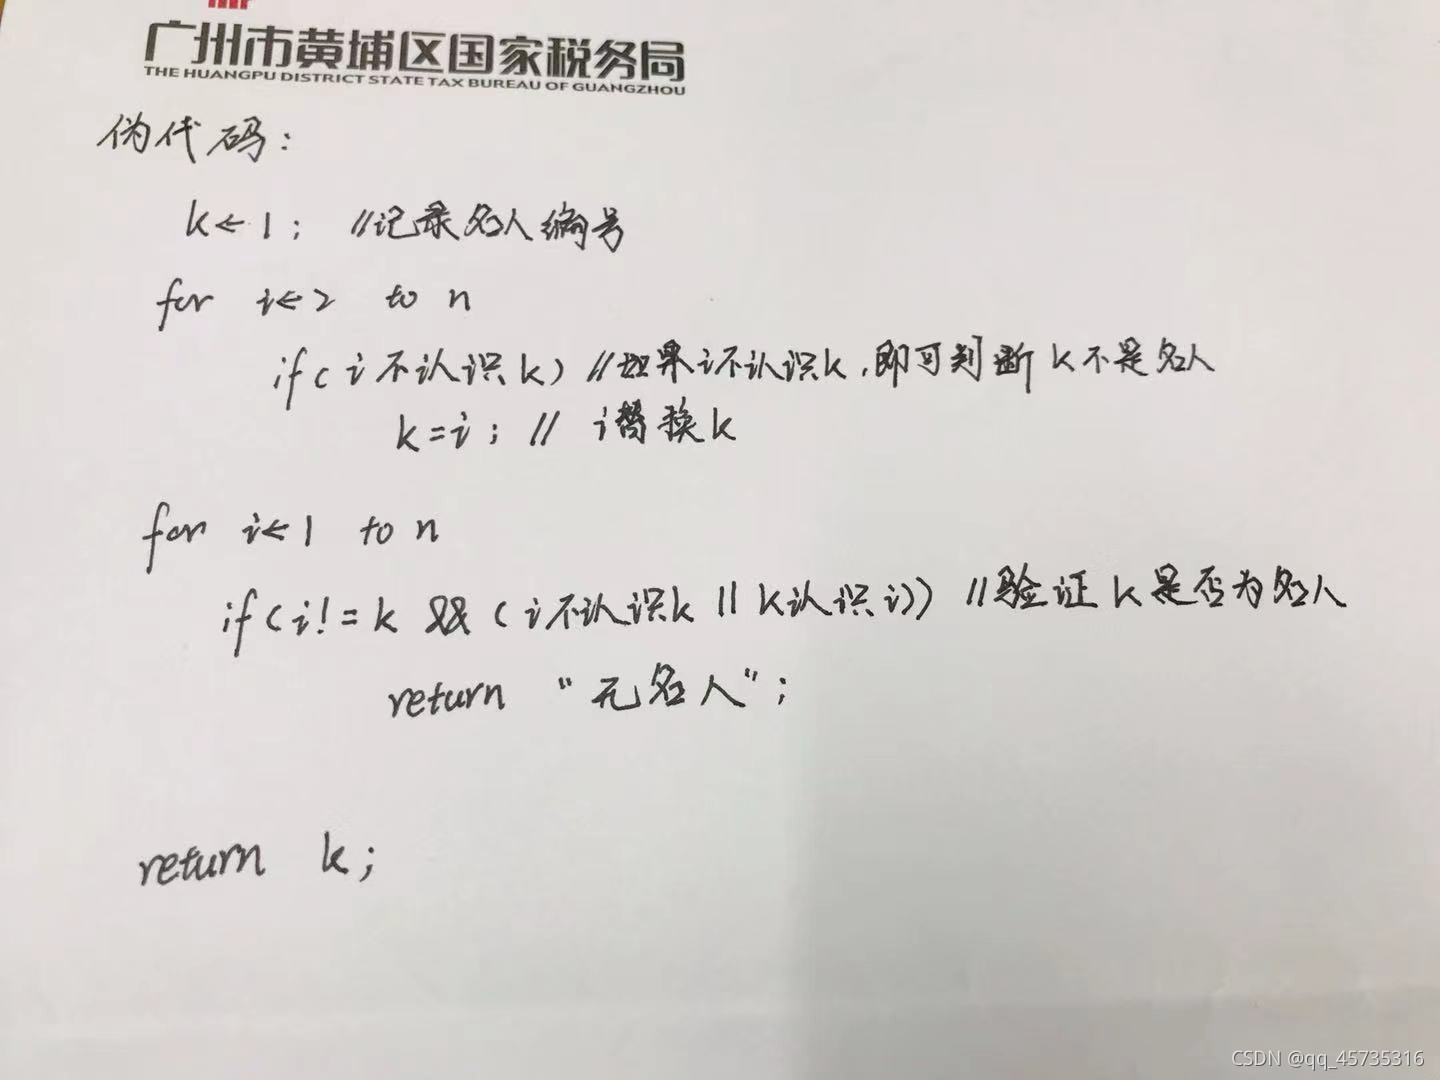 广州市黄埔区国家税务局
THE HUANGPU DISTRICT STATE TAX BUREAU OF GUANGZHOU
伪代码:
k←1; //记录名人编号
for i←2 to n
if(i不认识k) //如果i不认识k,即可判断k不是名人
k=i; // i替换k
for i←1 to n
if(i!=k && (i不认识k || k认识i)) //验证k是否为名人
return "无名人";
return k;
CSDN @qq_45735316